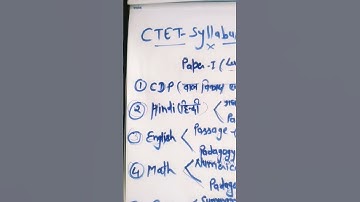 CTET-Syllabu
×
Paper-I (
① CDP (बाल विकास
② Hindi (हिन्दी)
③ English < Passage
Padagogy
④ Math < Numeric
Padago